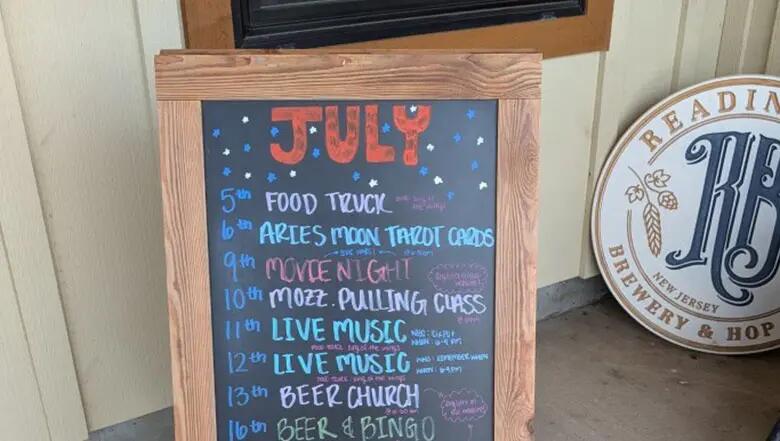 JULY
5th FOOD TRUCK
6th ARIES MOON TAROT CARDS
9th MOVIE NIGHT
10th MOZZ. PULLING CLASS
11th LIVE MUSIC
12th LIVE MUSIC WHO: REMEMBER WHEN
WHEN: 6-9 PM
13th BEER CHURCH
16th BEER & BINGO
READIN
RB
NEW JERSEY
BREWERY & HOP